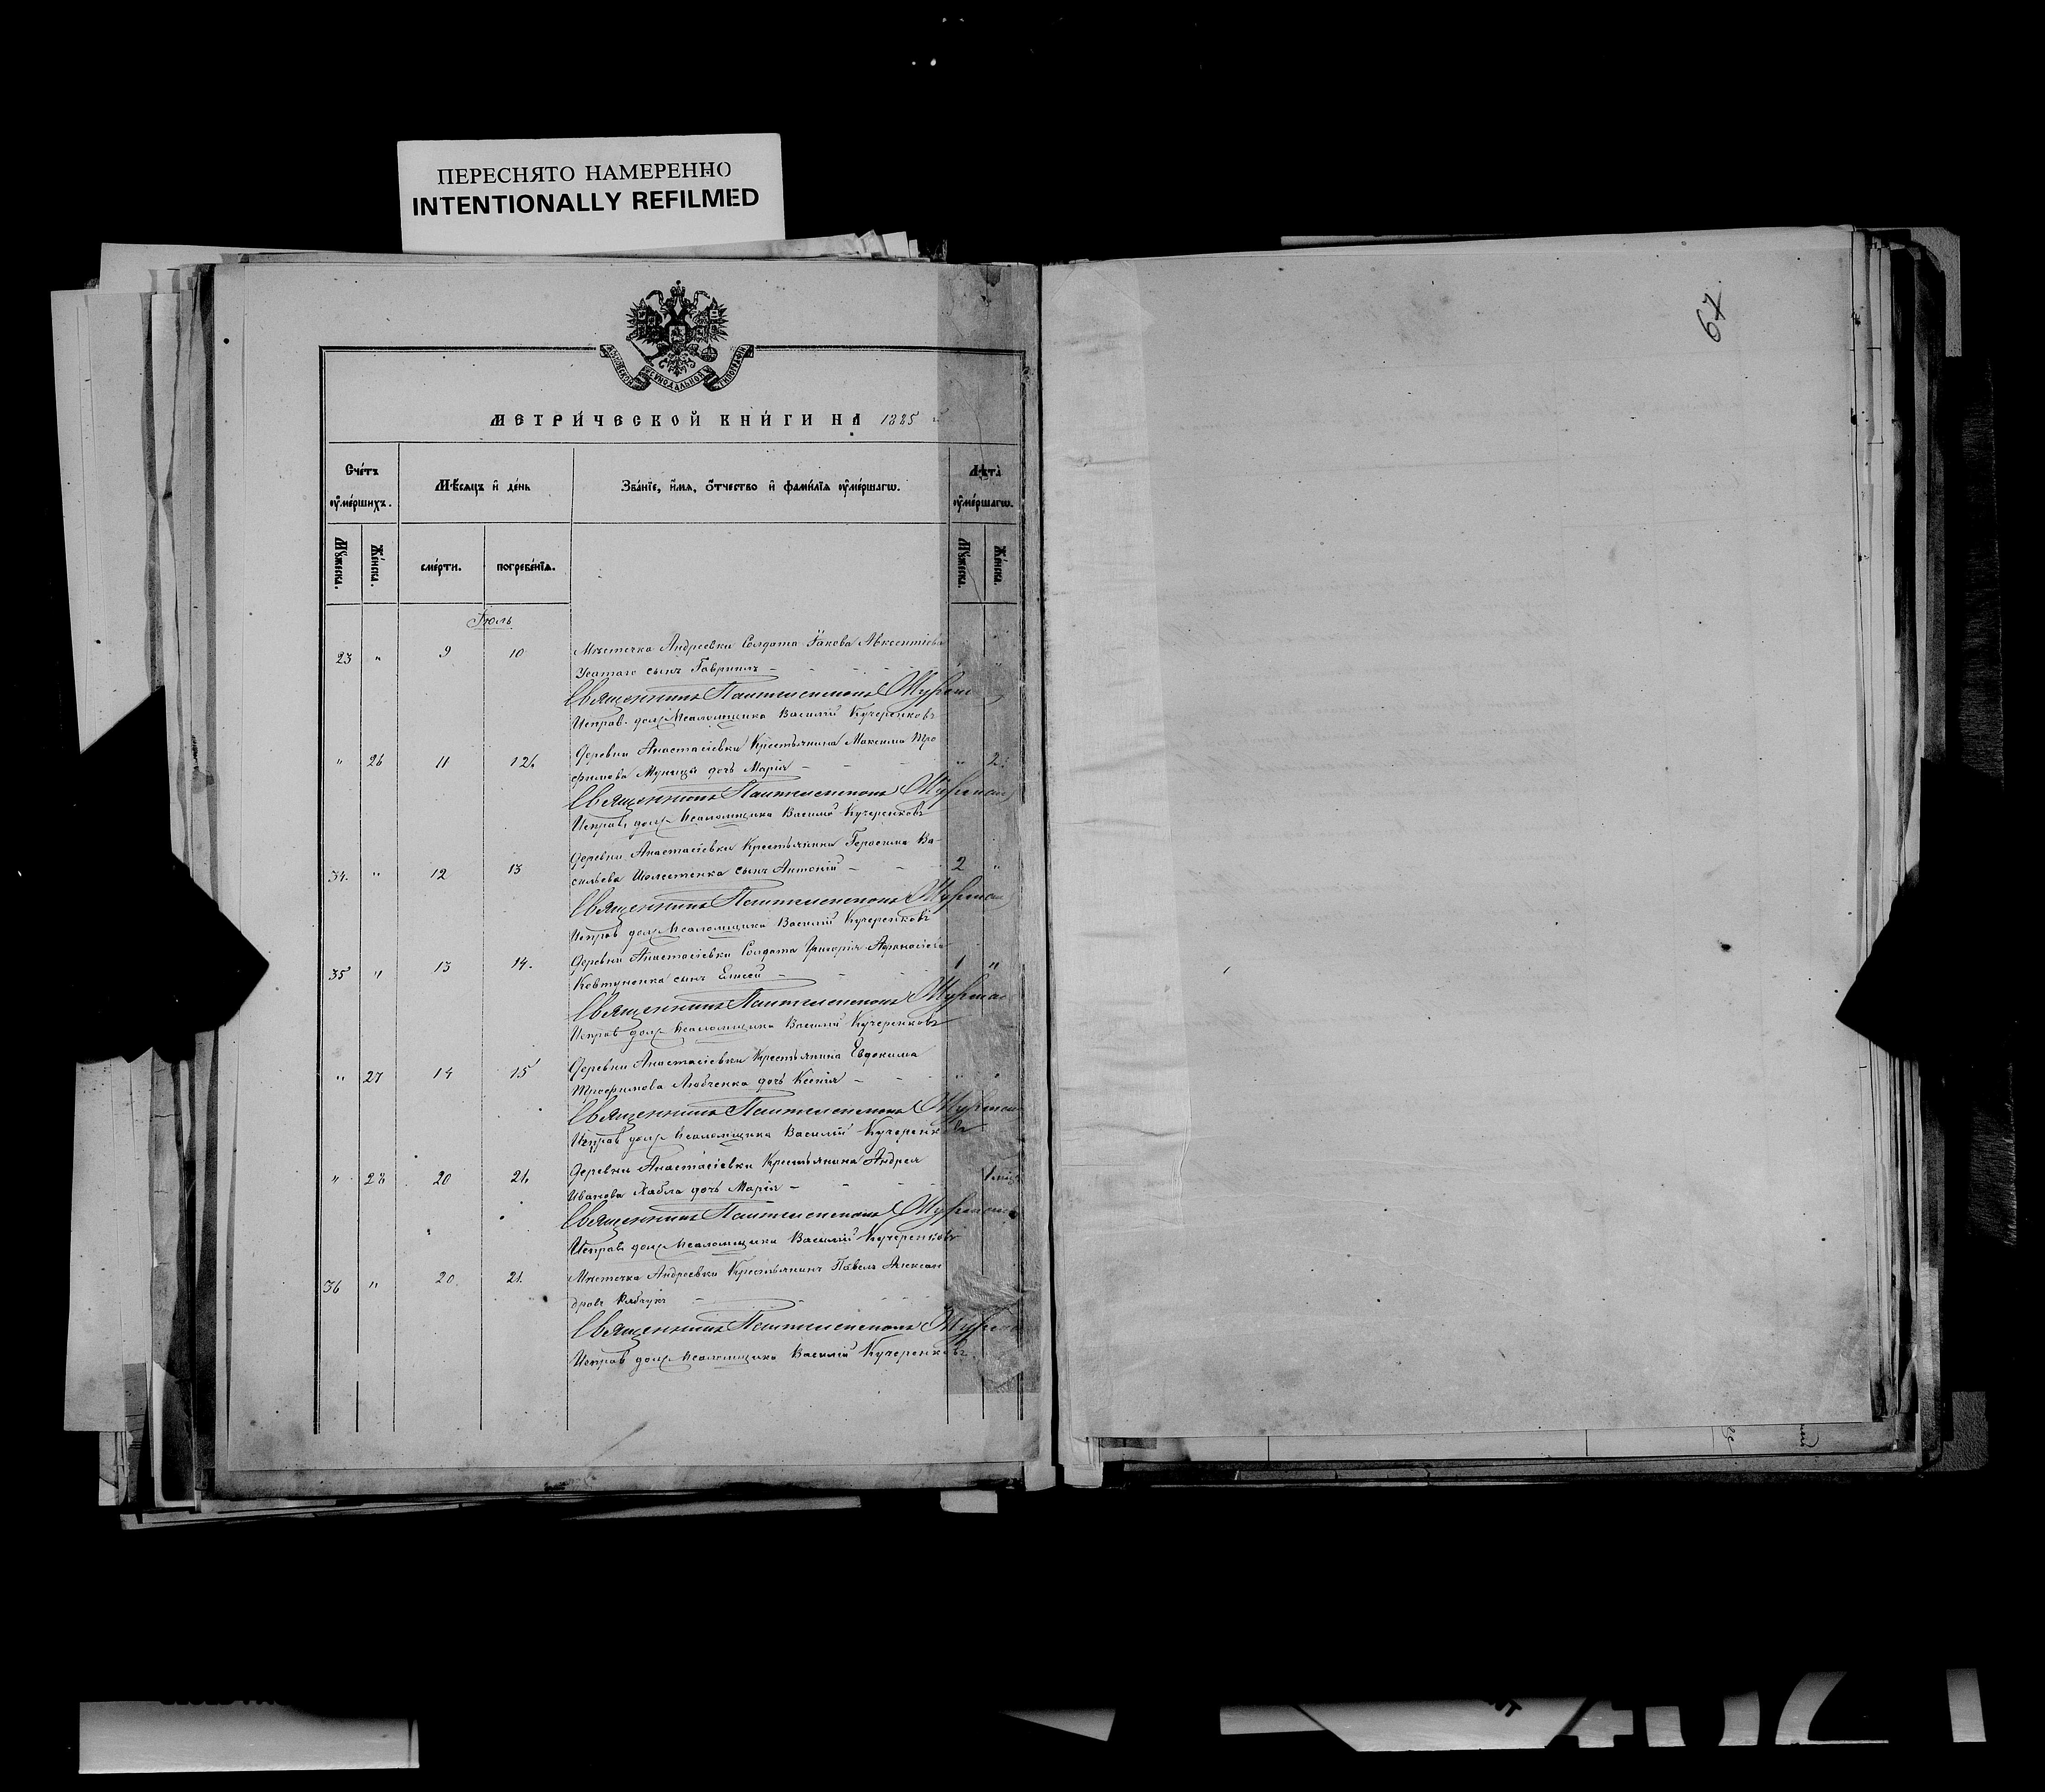 ПЕРЕСНЯТО НАМЕРЕННО
INTENTIONALLY REFILMED
67.
МОСКОВСКОЙ СѴНОДАЛЬНОЙ ТИПОГРАФІИ
МЕТРИ́ЧЕСКОЙ КНИ́ГИ НА 1885
Сче́тъ ᲂу҆ме́ршихъ.
Мѣ́сяцъ и҆ де́нь
Зва́нїе, и҆́мѧ, ѻ҆́тчество и҆ фами́лїѧ ᲂу҆ме́ршагѡ.
Лѣ̑та ᲂу҆ме́ршагѡ.
Мꙋ́жеска.
Же́нска.
сме́рти.
погребе́нїѧ.
Мꙋ́жеска.
Же́нска.
Іюль
23 " 9 10 Мѣстечка Андреевки Солдата Іакова Авксентіева
Усатаго сынъ Гавриилъ
Священникъ Пантелеимонъ
Исправ. долж Псаломщика Василій Кучеренковъ
" 26 11 12. Деревни Анастасіевки Крестьянина Максима Тро
фимова дочь Марія " 2.
Священникъ Пантелеимонъ
Исправ. долж Псаломщика Василій Кучеренковъ
34. " 12 13 Деревни Анастасіевки Крестьянина Герасима Ва-
сильева сынъ Антоній 2 "
Священникъ Пантелеимонъ
Исправ долж Псаломщика Василій Кучеренковъ
35 " 13 14. Деревни Анастасіевки Солдата Григорія Афанасіева
Ковтуненка сынъ Елисей 1 "
Священникъ Пантелеимонъ
Исправ долж Псаломщика Василій Кучеренковъ
" 27 14 15 Деревни Анастасіевки Крестьянина Евдокима
Трофимова Любченка дочь Ксенія "
Священникъ Пантелеимонъ
Исправ долж Псаломщика Василій Кучеренковъ
" 28 20 21. Деревни Анастасіевки Крестьянина Андрея
Иванова дочь Марія
Священникъ Пантелеимонъ
Исправ. долж Псаломщика Василій Кучеренковъ
36 " 20. 21. Мѣстечка Андреевки Крестьянинъ Павелъ Алексан
дровъ Рябчукъ
Священникъ Пантелеимонъ
Исправ долж Псаломщика Василій Кучеренковъ.